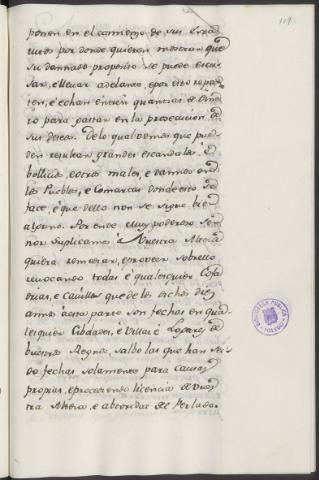 119
ponen en el comienzo de sus
tutos por donde quieren mostrar que
su dannado proposito se puede escu
sar, e llevar adelante, e por esto repar
ten, e echan entre sí quantias de Dine
ro para gastar en la prosecucion de
sus deseos. De lo qual vemos que pue
den resultar grandes escandalos, e
bollicios, e otros males, e dannos en
los Pueblos, e Comarcas donde esto se
face, e que dello non se sigue bien
alguno. Por ende muy poderoso Sen
nor suplicamos à Vuestra Alteza
quiera remediar, e proveer sobrello
revocando todas e qualesquier Cofa
drias, e Cavildos que de los dichos diez
annos acá parte son fechas en qual
esquier Cibdades, e Villas e Logares de
vuestros Regnos, salvo las que han sei
do fechas solamente para causas
propias, e procediendo licencia de Vues
tra Alteza, e abtoridat del Perlado.
BIBLIOTECA PUBLICA
TOLEDO